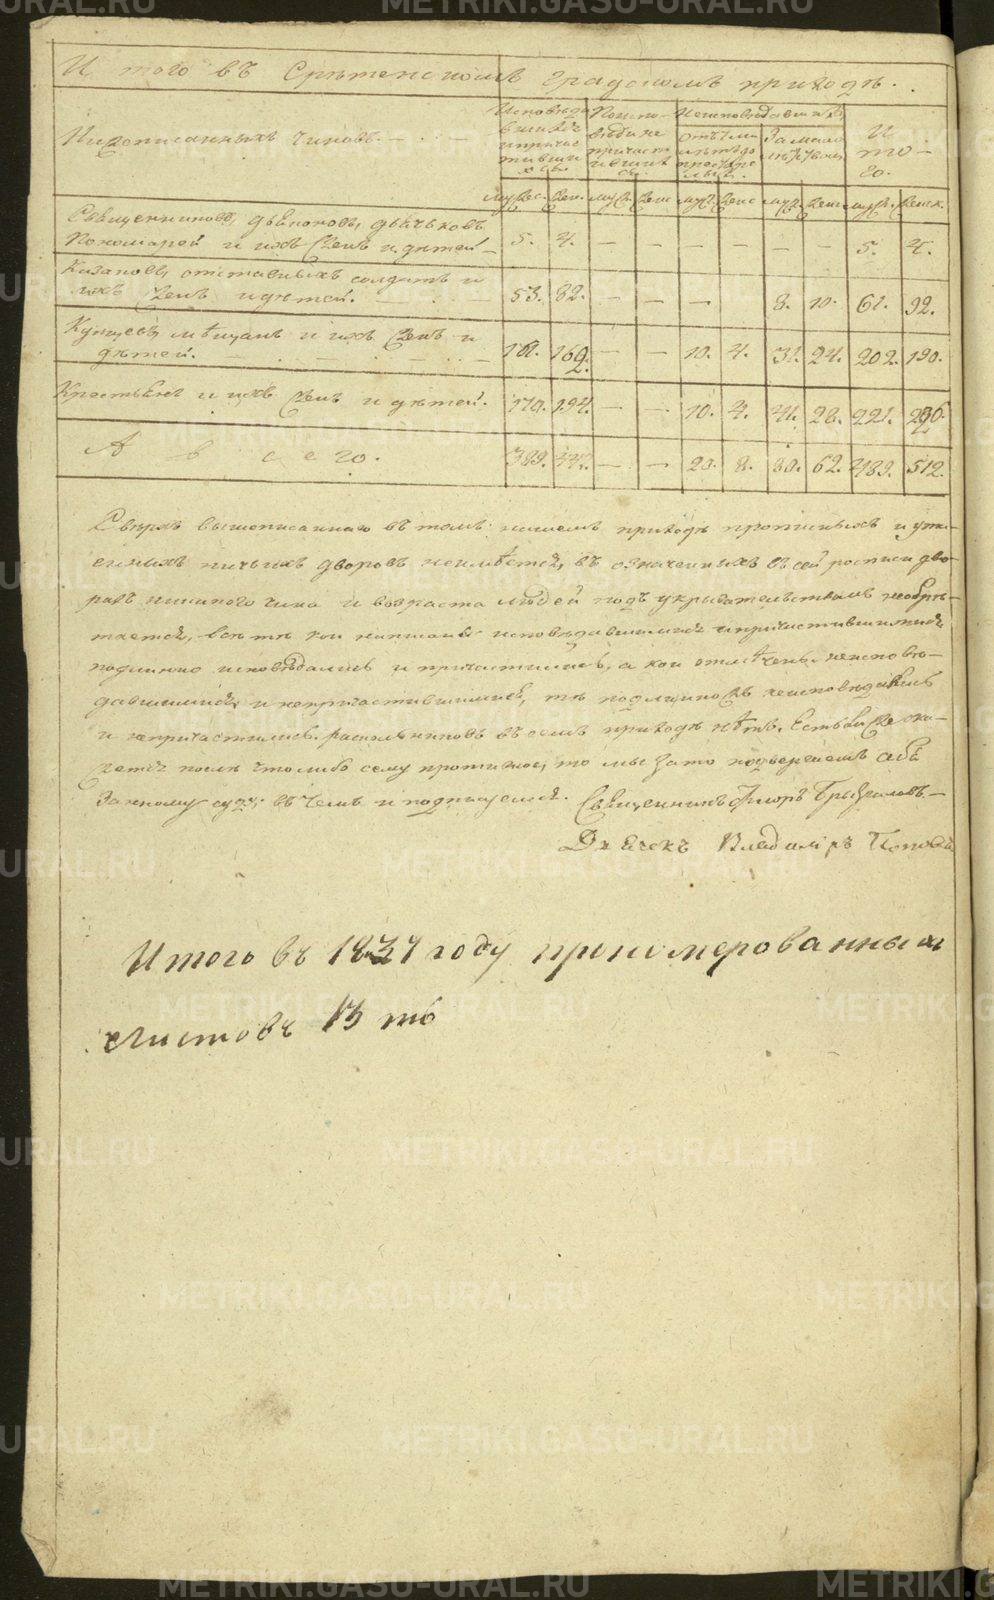 И того въ Срѣтенскомъ градскомъ приходѣ.
Нижеписанныхъ чиновъ.
Исповѣда
вшихся
и причас
тивши
хся.
Исповѣ
давшихся
Неисповѣдавших
За мало
лѣтствомъ
И
то-
го.
муж. жен. муж. жен. муж. жен. муж. жен. муж. женск.
Священниковъ, дьяконовъ, дьячковъ
Пономарей и ихъ женъ и дѣтей — 5. 4. — — — — — — 5. 4.
Казаковъ, отставныхъ солдатъ и
ихъ женъ и дѣтей. 53. 82. — — — 8. 10. 61. 92.
Купцевъ, мѣщанъ и ихъ женъ и
дѣтей. 161. 162. — — 10. 4. 31. 24. 202. 190.
Крестьянъ и ихъ женъ и дѣтей. 170. 194. — — 10. 4. 41. 28. 221. 226.
А всего. 389. 442. — — 20. 8. 80. 62. 489. 512.
Сверхъ вышеписаннаго въ томъ нашемъ приходѣ прописныхъ и ута-
енныхъ ничьихъ дворовъ неимѣется, въ означенныхъ въ сей росписи дво-
рахъ никакого чина и возраста людей подъ укрывательствомъ необрѣ-
тается, всѣ тѣ кои написаны исповѣдавшимися и причастившимися
подлинно исповѣдались и причастились, а кои отмѣчены неисповѣ-
давшимися и непричастившимися, тѣ подлинно жъ неисповѣдались
и непричастились. Раскольниковъ въ семъ приходѣ нѣтъ. Естьли же ока-
жется послѣ что либо сему противное, то мы за то подвергаемъ себѣ
законному суду; въ чемъ и подписуемся. Священникъ
Дьячекъ Владимiръ Поповъ
Итого въ 1834 году пронумерованныхъ
листовъ 13 ть
METRIKI.GASO-URAL.RU